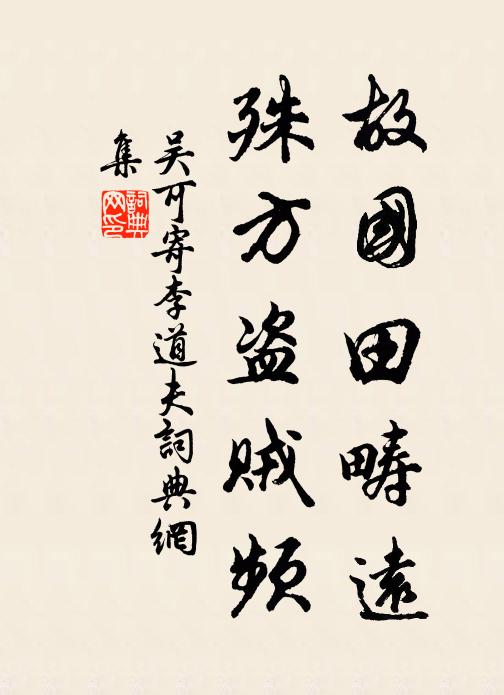 故國田疇遠
殊方盗賊頻
吴可寄李道夫詞典網
集
詞典
网印